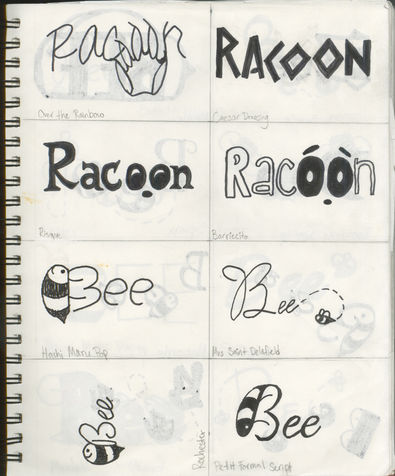 Racoon
RACOON
Over the Rainbow
Caesar Dressing
Racoon
Racóòn
Risque
Barriecito
Bee
Bee
Hachi Maru Pop
Mrs Saint Delafield
Bee
Bee
Rochester
Petit Formal Script